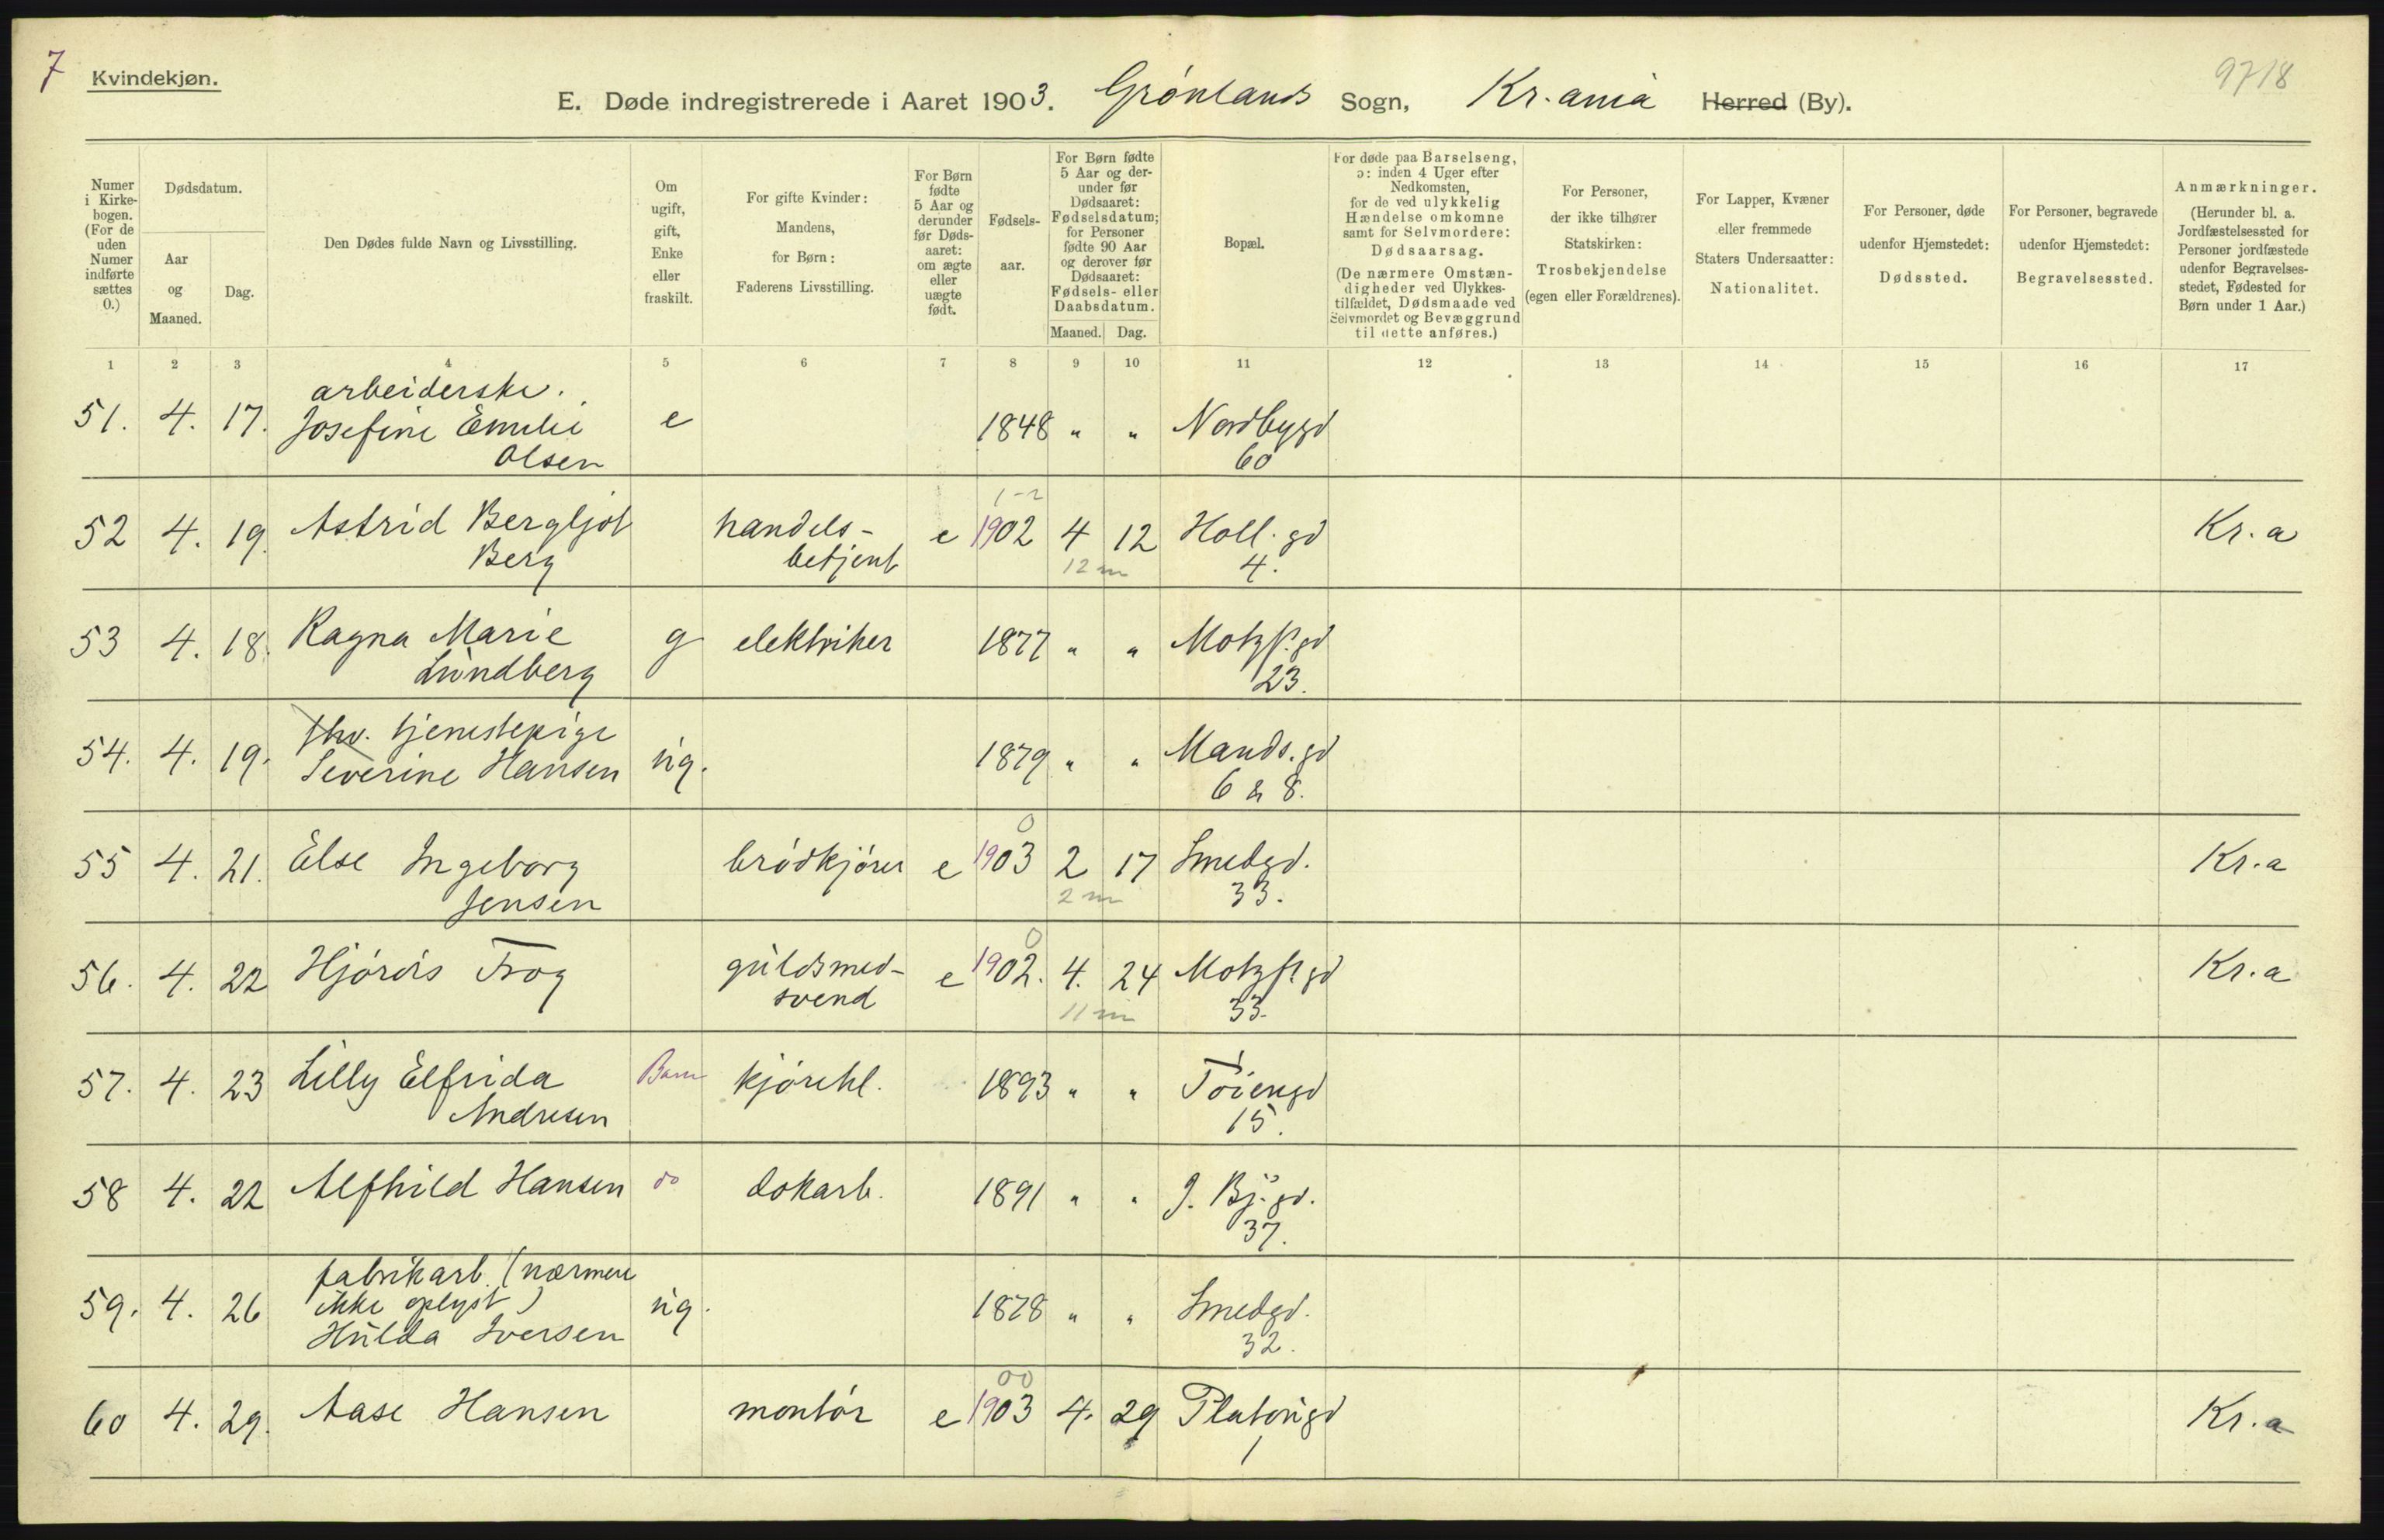 7
Kvindekjøn.
9718
E. Døde indregistrerede i Aaret 1903. Grönlands Sogn, Kr.ania Herred (By).
Numer i Kirkebogen. (For de uden Numer indførte sættes 0.)
Dødsdatum.
Aar og Maaned.
Dag.
Den Dødes fulde Navn og Livsstilling.
Om ugift, gift, Enke eller fraskilt.
For gifte Kvinder: Mandens, for Børn: Faderens Livsstilling.
For Børn fødte 5 Aar og derunder før Dødsaaret: om ægte eller uægte født.
Fødselsaar.
For Børn fødte 5 Aar og derunder før Dødsaaret: Fødselsdatum; for Personer fødte 90 Aar og derover før Dødsaaret: Fødsels- eller Daabsdatum.
Maaned. Dag.
Bopæl.
For døde paa Barselseng, ɔ: inden 4 Uger efter Nedkomsten, for de ved ulykkelig Hændelse omkomne samt for Selvmordere: Dødsaarsag. (De nærmere Omstændigheder ved Ulykkestilfældet, Dødsmaade ved Selvmordet og Bevæggrund til dette anføres.)
For Personer, der ikke tilhører Statskirken: Trosbekjendelse (egen eller Forældrenes).
For Lapper, Kvæner eller fremmede Staters Undersaatter: Nationalitet.
For Personer, døde udenfor Hjemstedet: Dødssted.
For Personer, begravede udenfor Hjemstedet: Begravelsessted.
Anmærkninger. (Herunder bl. a. Jordfæstelsessted for Personer jordfæstede udenfor Begravelsesstedet, Fødested for Børn under 1 Aar.)
1 2 3 4 5 6 7 8 9 10 11 12 13 14 15 16 17
arbeiderske.
51. 4. 17. Josefine Emilie e 1848 " " Nordbygd
Olsen 60
1-2
52 4. 19. Astrid Bergljot handels- e 1902 4 12 Holl. gd Kr.a
Berg betjent 12 m 4.
53 4. 18. Ragna Marie g elektriker 1877 " " Motzf. gd
Lundberg 23.
fhv. tjenestepige
54. 4. 19. Severine Hansen ug. 1879 " " Mands. gd
6 & 8.
0
55 4. 21. Else Ingeborg brödkjörer e 1903 2 17 Smedgd. Kr.a
Jensen 2 m 33.
0
56. 4. 22 Hjördis Trog guldsmed- e 1902. 4. 24 Motzf. gd Kr.a
svend 11 m 33.
57. 4. 23 Lilly Elfrida Barn kjörekl. 1893 " " Töiengd
Andresen 15.
58 4. 22 Alfhild Hansen do dokarb. 1891 " " J. Bj. gd.
37.
fabrikarb. (nærmere
59. 4. 26 ikke oplyst) ug. 1878 " " Smedgd.
Hulda Iversen 32.
00
60 4. 29. Aase Hansen montör e 1903 4. 29 Platougd Kr.a
1